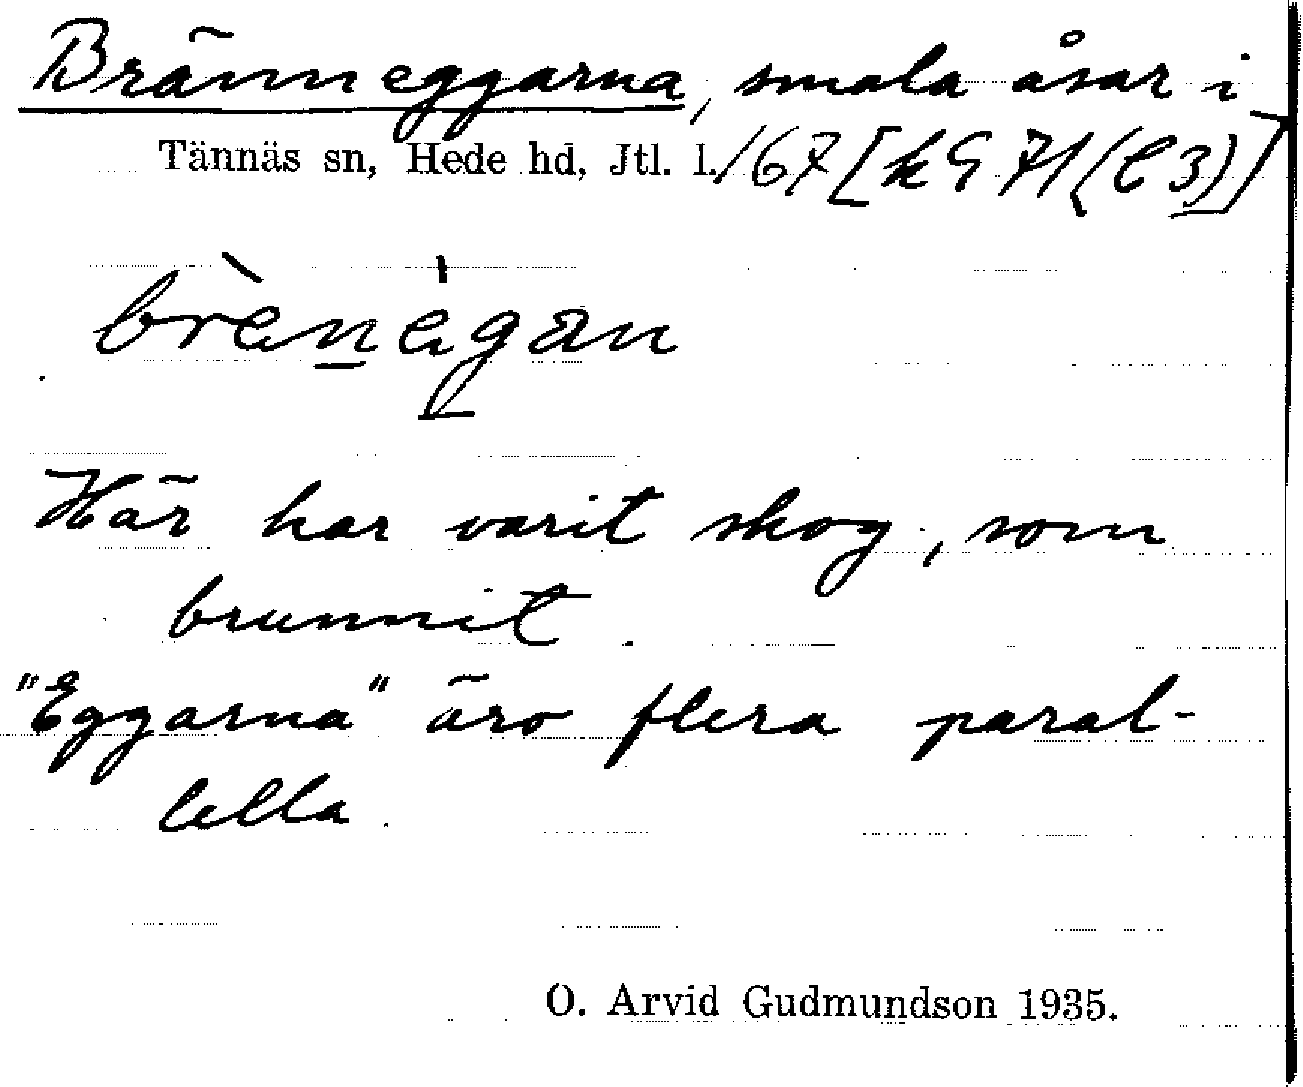 Bränneggarna, smala åsar i
Tännäs sn, Hede hd, Jtl. l./67[k971(C3)]
brènègan
Här har varit skog, som
brunnit.
"Eggarna" äro flera paral-
lella.
O. Arvid Gudmundson 1935.